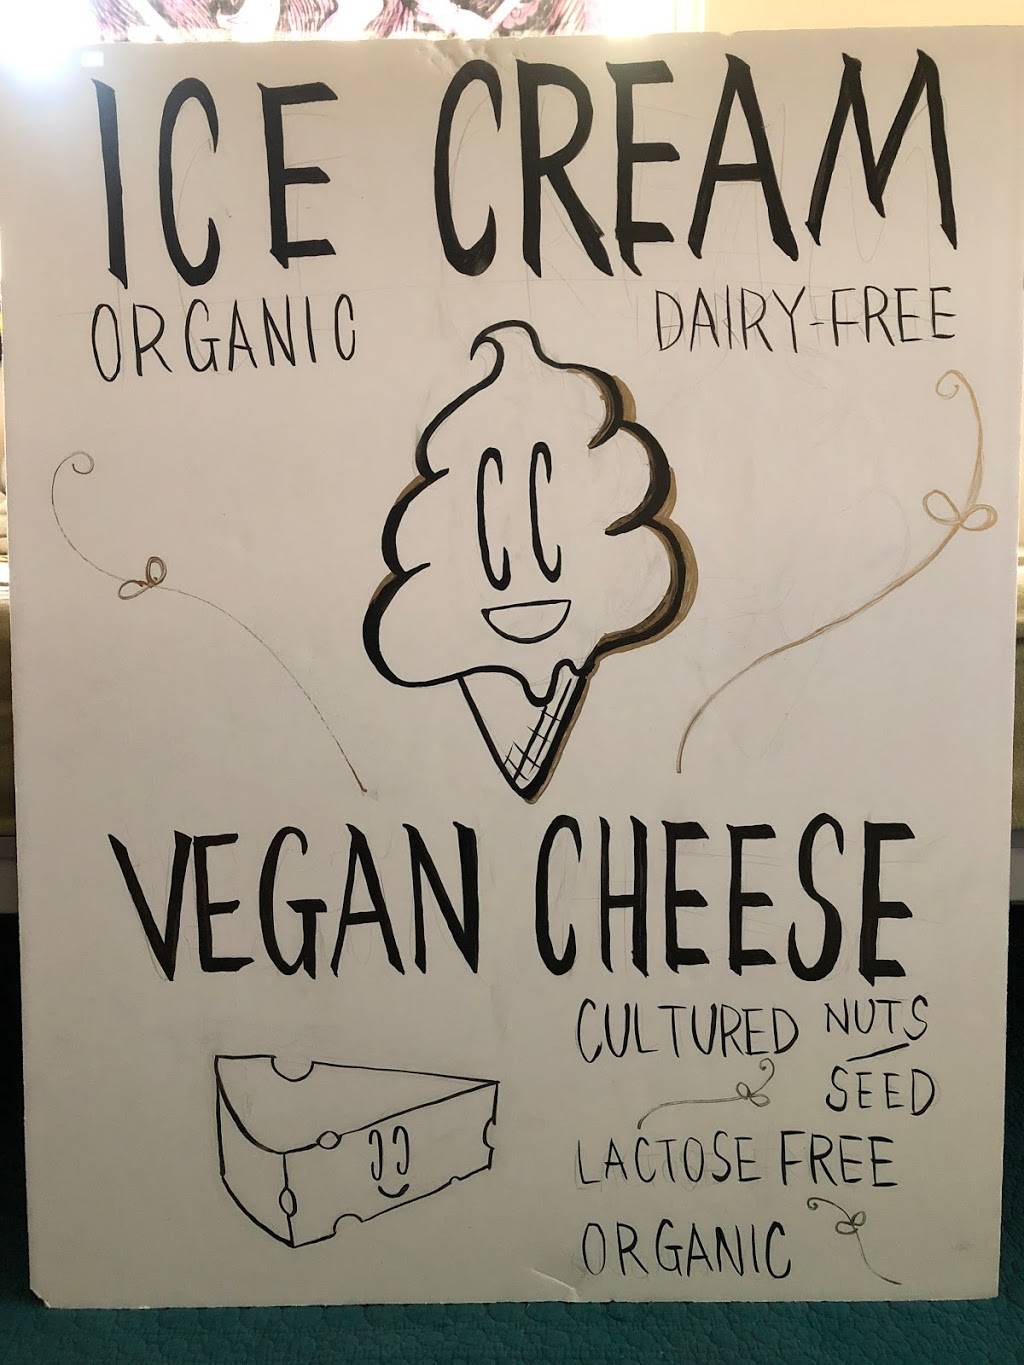 ICE CREAM
ORGANIC DAIRY-FREE
VEGAN CHEESE
CULTURED NUTS/
SEED
LACTOSE FREE
ORGANIC